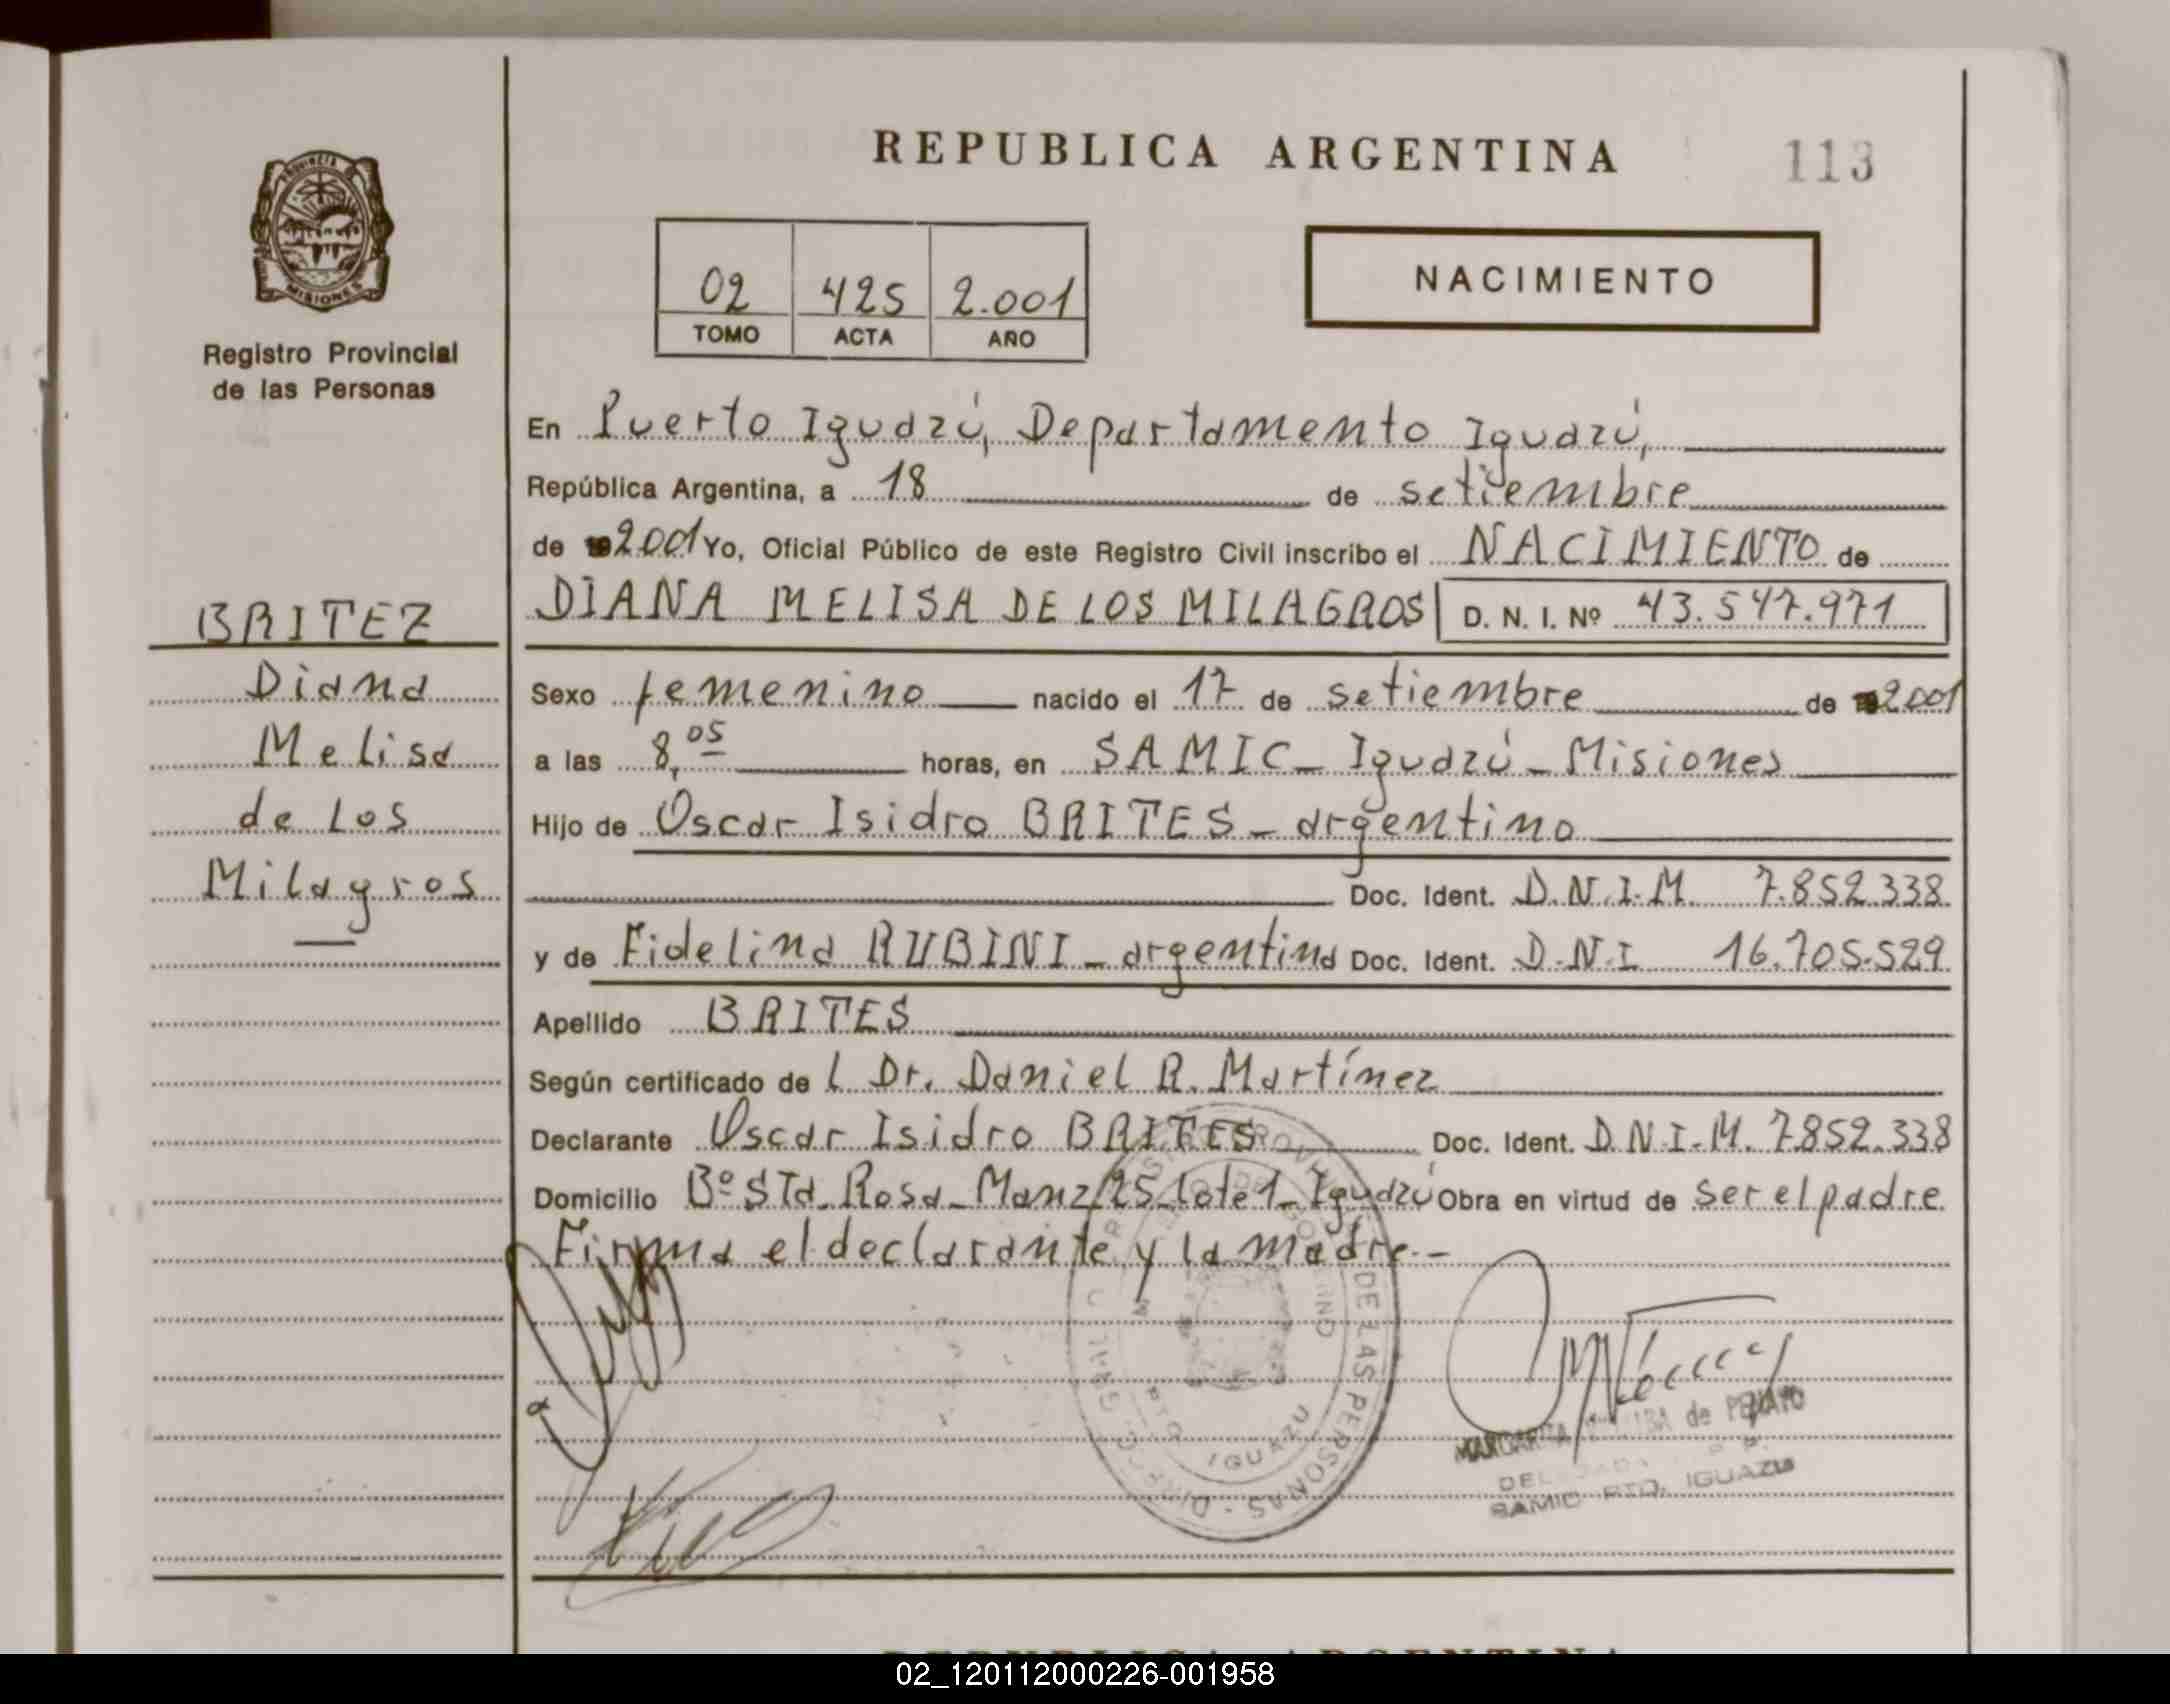 REPUBLICA ARGENTINA
113
PROVINCIA
MISIONES
Registro Provincial
de las Personas
02 425 2.001
TOMO ACTA AÑO
NACIMIENTO
En Puerto Iguazú, Departamento Iguazú,
República Argentina, a 18 de setiembre
de 2001 Yo, Oficial Público de este Registro Civil inscribo el NACIMIENTO de
DIANA MELISA DE LOS MILAGROS D. N. I. Nº 43.547.971
BRITEZ
Diana
Melisa
de Los
Milagros
Sexo femenino nacido el 17 de setiembre de 2001
a las 8,05 horas, en SAMIC - Iguazú - Misiones
Hijo de Oscar Isidro BRITES - argentino
Doc. Ident. D.N.I.M. 7.852.338
y de Fidelina RUBINI - argentina Doc. Ident. D.N.I 16.705.529
Apellido BRITES
Según certificado de l Dr. Daniel R. Martínez
Declarante Oscar Isidro BRITES Doc. Ident. D.N.I.M. 7852.338
Domicilio Bº STa. Rosa - Manz 25 Lote 1 - Iguazú Obra en virtud de ser el padre
Firma el declarante y la madre.-
DE LAS PERSONAS
PTO IGUAZU
MARGARITA de PELAYO
SAMIC PTO. IGUAZU
REPUBLICA ARGENTINA
02_120112000226-001958